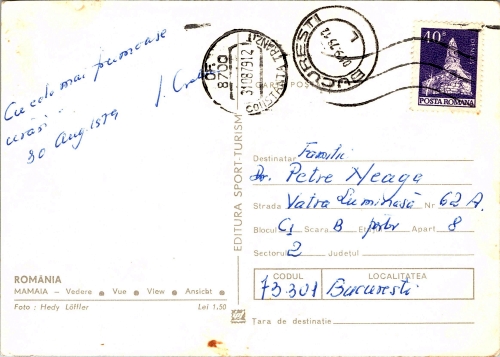 Cu cele mai frumoase
urări...
30 Aug. 1979
ROMÂNIA
MAMAIA – Vedere • Vue • View • Ansicht •
Foto : Hedy Löffler Lei 1.50
EDITURA SPORT-TURISM
OF. 8700
31.08.79.12
CONSTANTA
TRANZIT
BUCURESTI
1
CARTE POȘTALĂ
40B
POSTA ROMANA
Destinatar Familii
Dr. Petre Neaga
Strada Vatra Luminoasă Nr 62 A.
Blocul C1 Scara B Etaj parter Apart 8
Sectorul 2 Județul
CODUL LOCALITATEA
73.301 București
Țara de destinație